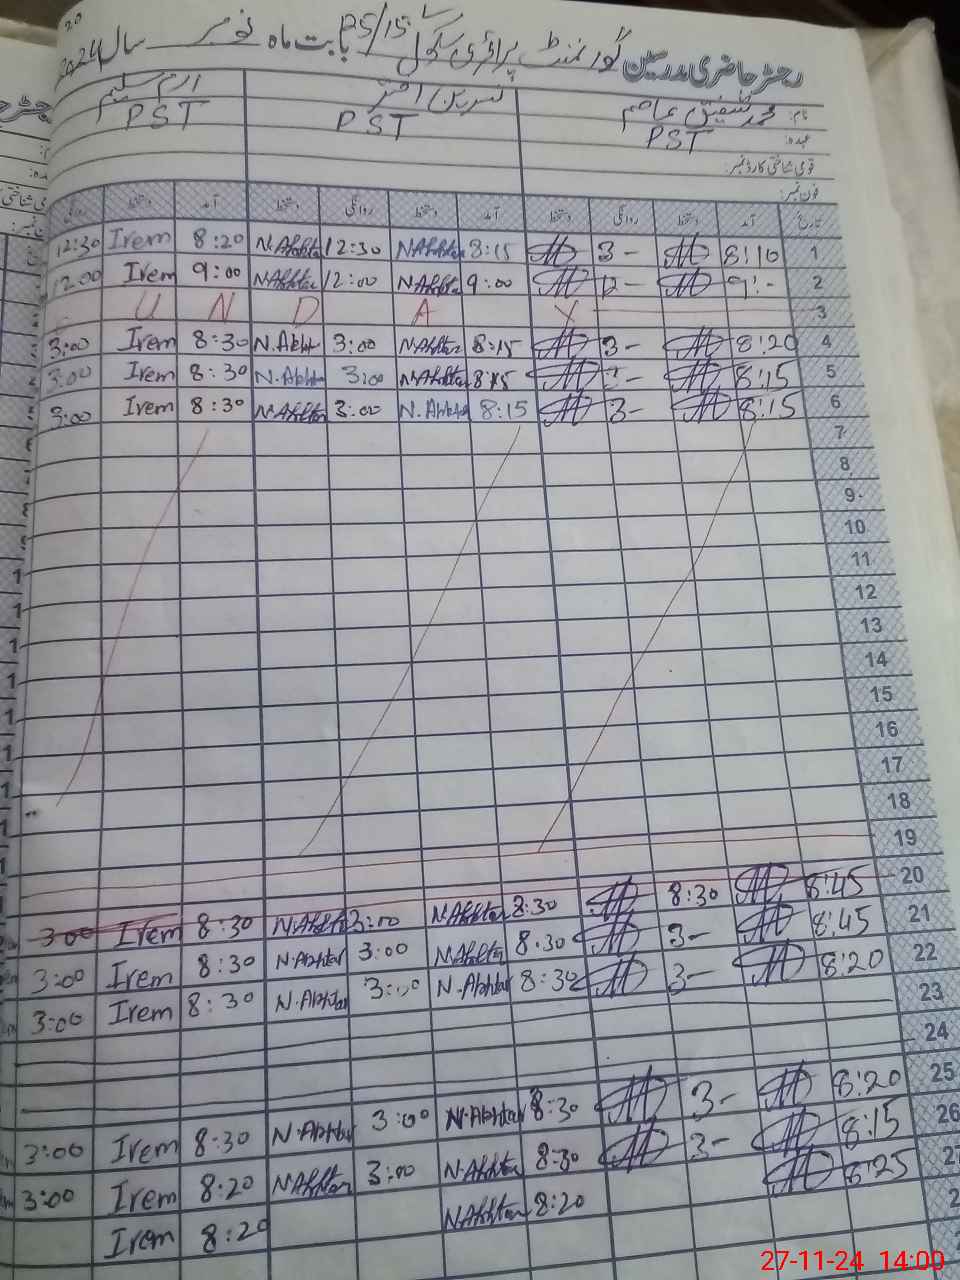 رجسٹر حاضری مدرسین گورنمنٹ پرائمری سکول 125/15 بابت ماہ نومبر سال 2024
نام: محمد شفیق عاصم نسرین اختر ارم سلیم
عہدہ: PST PST PST
قومی شناختی کارڈ نمبر:
فون نمبر:
تاریخ آمد دستخط روانگی دستخط آمد دستخط روانگی دستخط آمد دستخط روانگی
1 8:10 3- 8:15 N.Akhtar 12:30 N.Akhtar 8:20 Irem 12:30
2 9:- 12- 9:00 N.Akhtar 12:00 N.Akhtar 9:00 Irem 12:00
3 S U N D A Y
4 8:20 3- 8:15 N.Akhtar 3:00 N.Akht 8:30 Irem 3:00
5 8:15 3- 8:15 N.Akhtar 3:00 N.Akhtar 8:30 Irem 3:00
6 8:15 3- 8:15 N.Akhtar 3:00 N.Akhtar 8:30 Irem 3:00
7
8
9
10
11
12
13
14
15
16
17
18
19
20 8:45 8:30 8:30 N.Akhtar 3:00 N.Akhtar 8:30 Irem 3:00
21 8:45 3- 8:30 N.Akhtar 3:00 N.Akhtar 8:30 Irem 3:00
22 8:20 3- 8:30 N.Akhtar 3:00 N.Akhtar 8:30 Irem 3:00
23
24
25 8:20 3- 8:30 N.Akhtar 3:00 N.Akhtar 8:30 Irem 3:00
26 8:15 3- 8:30 N.Akhtar 3:00 N.Akhtar 8:20 Irem 3:00
27 8:25 8:20 N.Akhtar 8:20 Irem
27-11-24 14:00